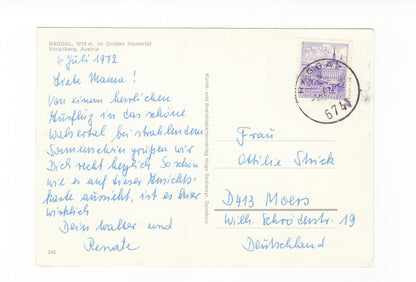 RAGGAL, 1016 m, im Großen Walsertal
Vorarlberg, Austria
4 Juli 1972
Liebe Mama!
Von einem herrlichen
Ausflug in das schöne
Walsertal bei strahlendem
Sonnenschein grüßen wir
Dich recht herzlich. So schön
wie es auf dieser Ansichts-
karte aussieht, ist es hier
wirklich
Dein Walter und
Renate
545
Kunst- und Ansichtskartenverlag Hugo Dornbirn
RAGGAL
6741
Frau
Ottilie Strick
D413 Moers
Wilh. Schröderstr. 19
Deutschland